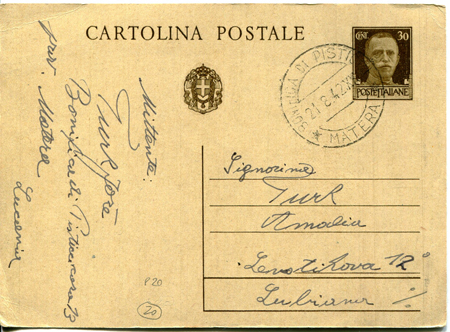 CARTOLINA POSTALE
CENT. 30
POSTE ITALIANE
BONIFICA DI PISTICCI
21.8.42.XX
* MATERA
Mittente:
Turk Jože
Bonifica di Pisticci
prov. Matera
Lucania
Signorina
Turk
Amalia
Lenotikova 12
Lubiana
P20
20